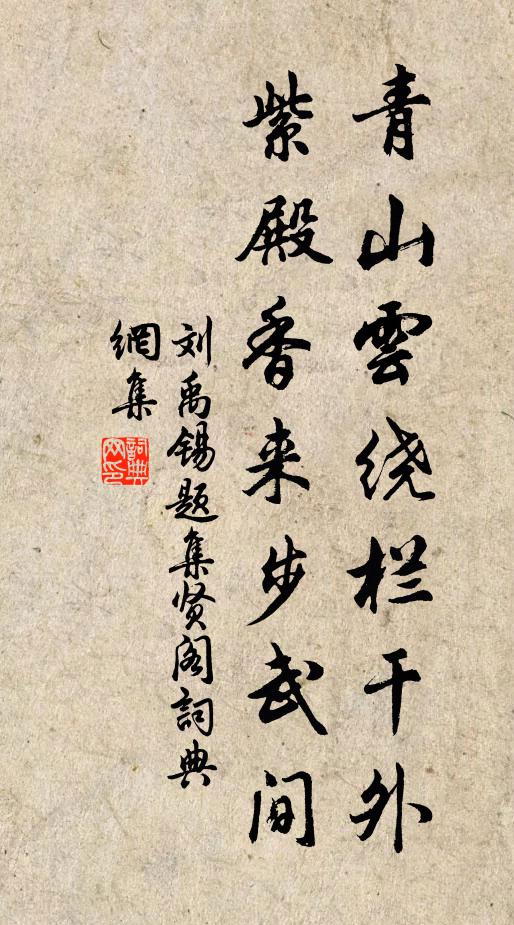 青山雲绕栏干外
紫殿香来步武间
刘禹锡题集贤阁詞典
網集
詞典网印